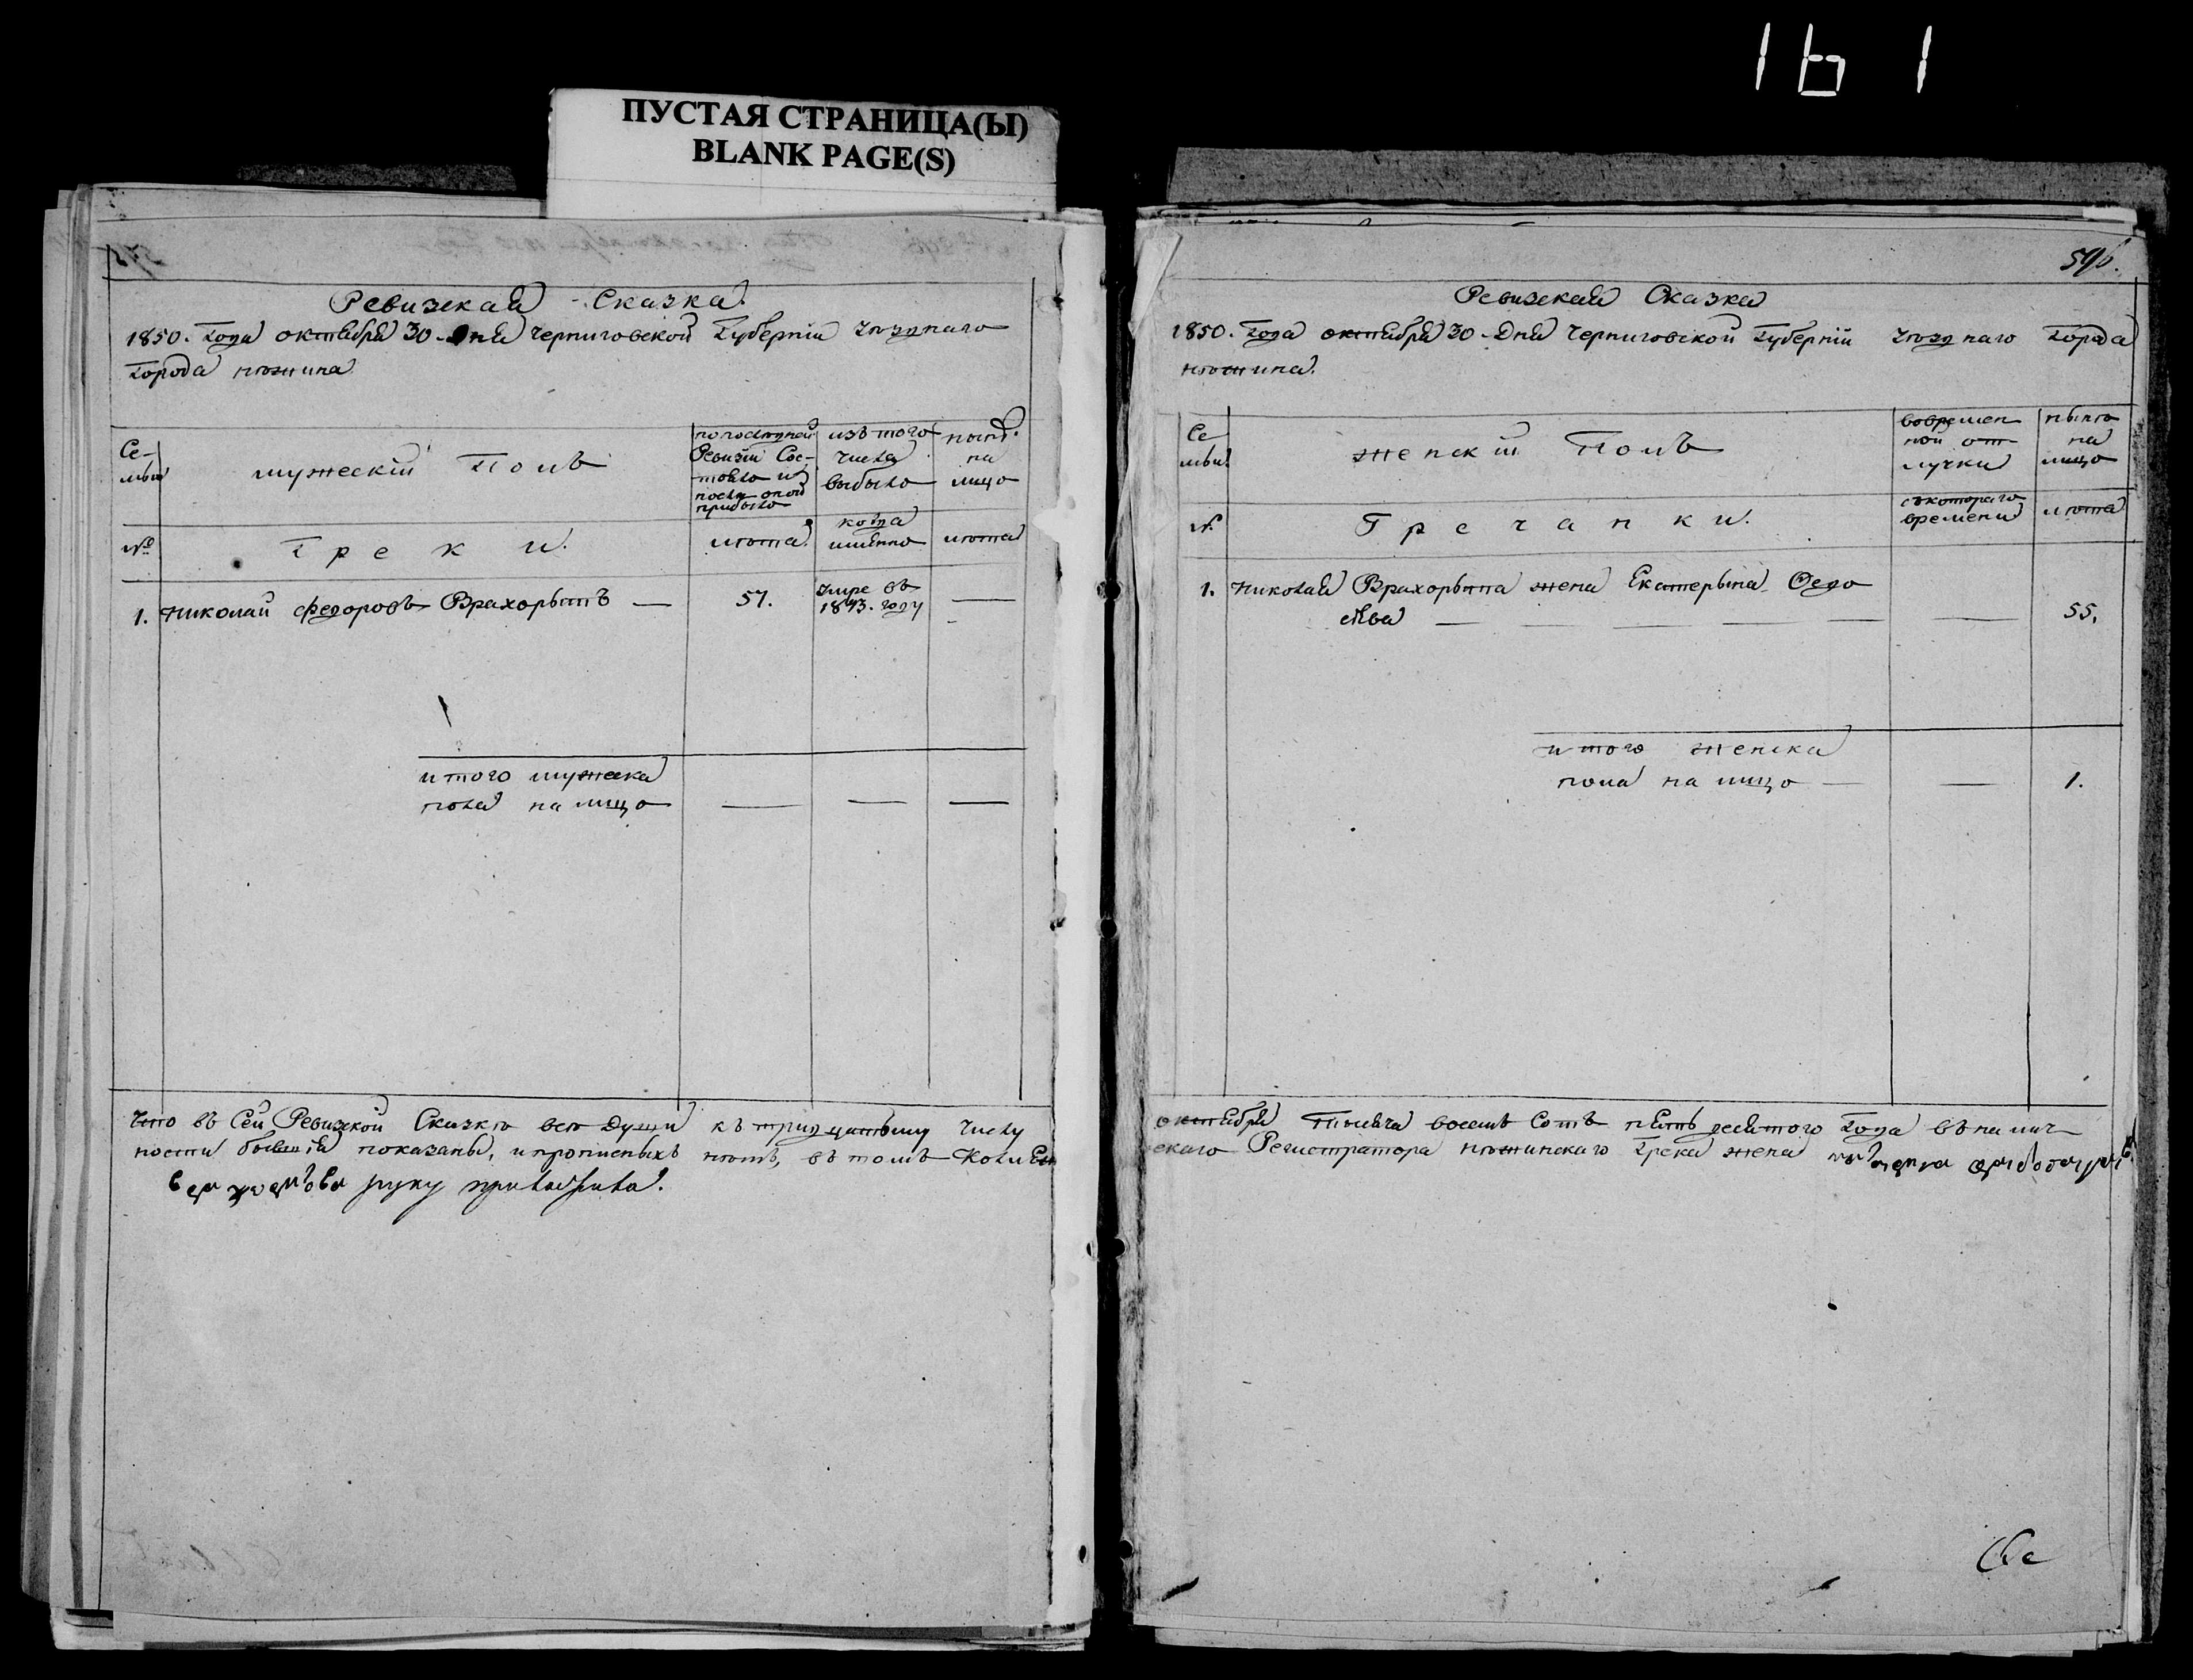 161
ПУСТАЯ СТРАНИЦА(Ы)
BLANK PAGE(S)
Ревизская Сказка
1850. Года октября 30 Дня Черниговской Губернiи уѣзднаго
Города Нѣжина
Се-
мьи
мужескiй Полъ
по последней
Ревизiи Сос-
тояло и
после оной
прибыло
изъ того
числа
выбыло
ныне
на
лицо
№
Греки.
лѣта
когда
именно
лѣта
1. Николай Федоровъ Врахорытъ —
57.
умре въ
1843. году
—
итого мужеска
пола на лицо
— — —
Что въ Сей Ревизской Сказкѣ всѣ души къ тридцатому числу
ности бывшiя показаны, и прописныхъ нѣтъ, въ томъ Колле
руку приложила.
596.
Ревизская Сказка
1850. Года октября 30 Дня Черниговской Губернiи уѣзднаго Города
Нѣжина.
Се-
мьи
женскiй Полъ
во времен
ной от
лучки
ныне
на
лицо
№
Гречанки.
съ котораго
времени
лѣта
1. Николая Врахорыта жена Екатерына Федо
сѣева — — — — — —
55.
итого женска
пола на лицо —
—
1.
октября Тысяча восемъ Сотъ пятъ десятого Года въ налич
скаго Регистратора Нѣжинскаго Грека жена